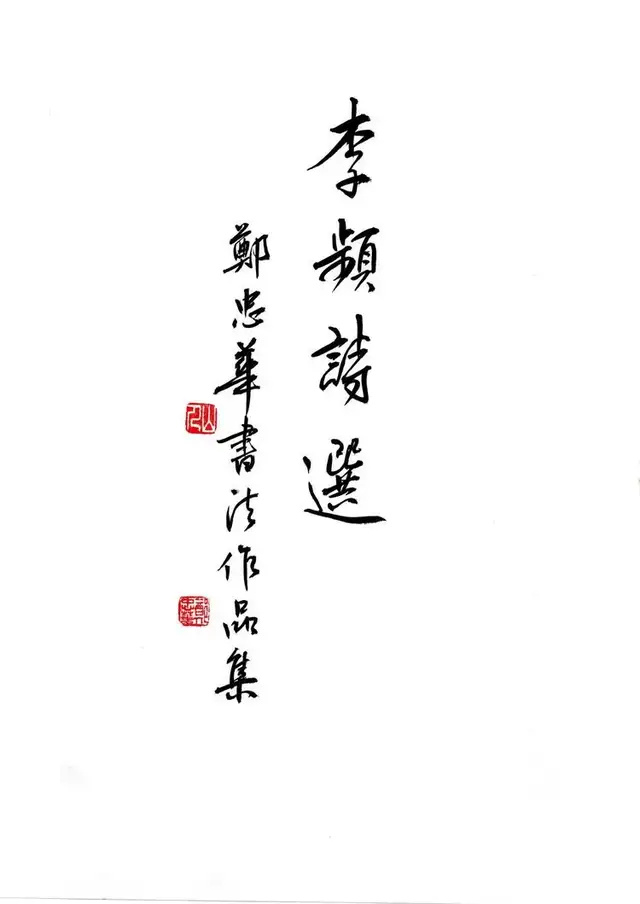 李頻詩選
鄭忠華書法作品集